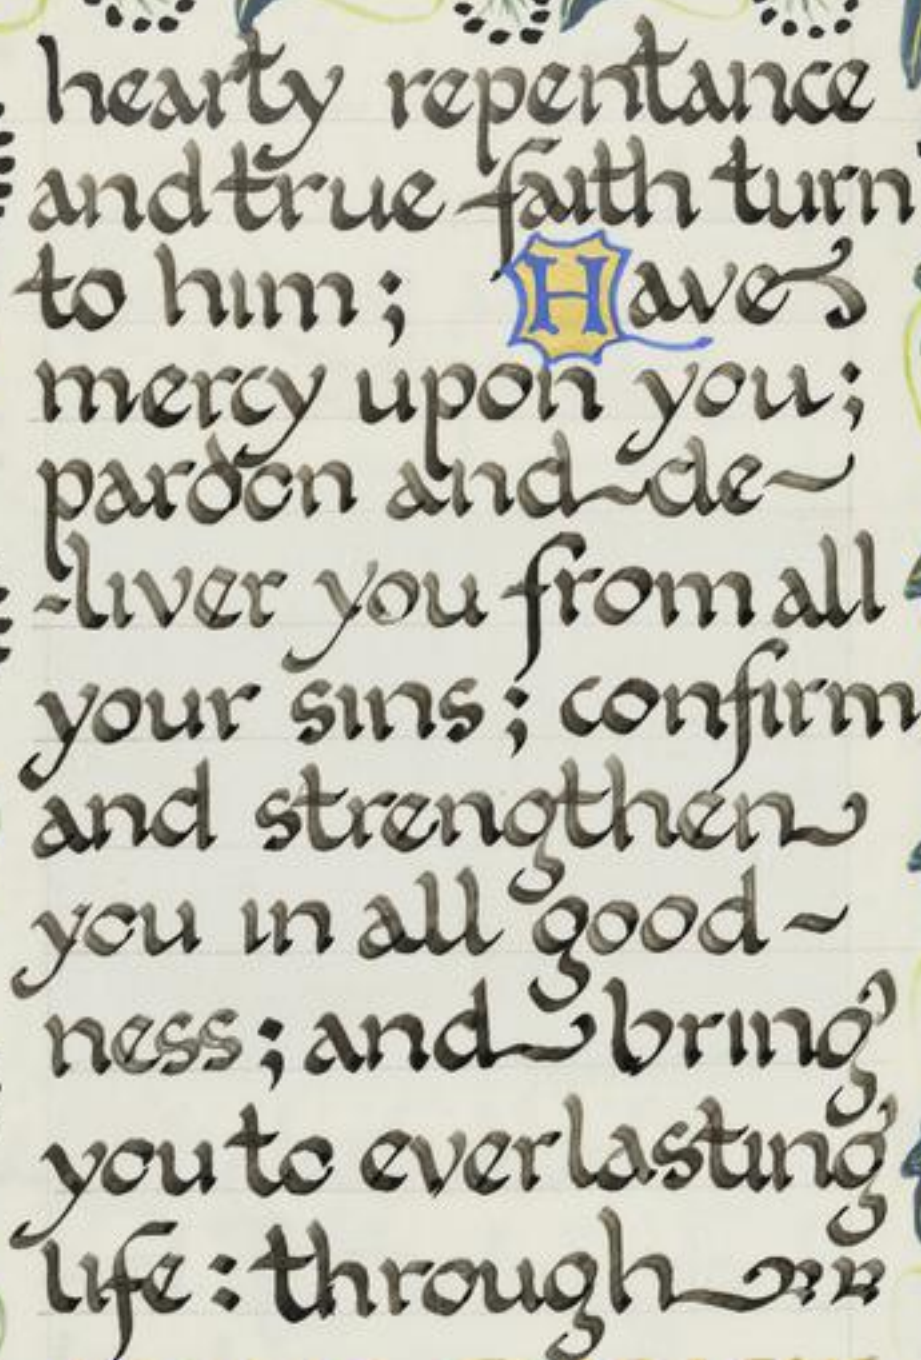 hearty repentance
and true faith turn
to him; Have
mercy upon you;
pardon and de~
-liver you from all
your sins; confirm
and strengthen
you in all good~
ness; and bring
you to everlasting
life: through